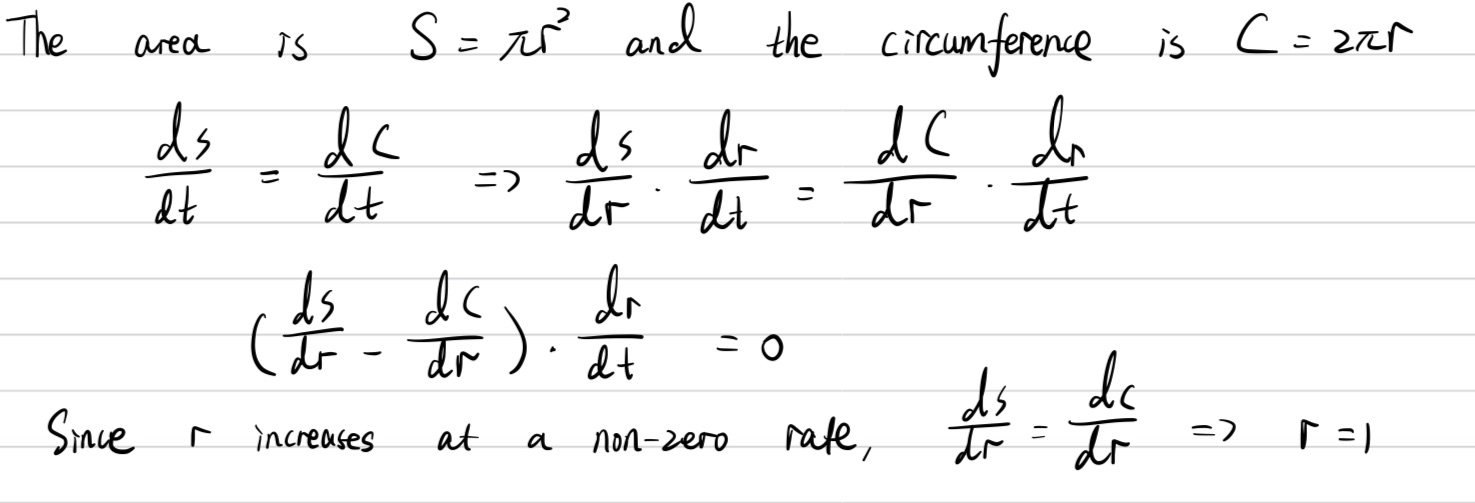 The area is S = πr² and the circumference is C = 2πr
ds/dt = dC/dt => ds/dr · dr/dt = dC/dr · dr/dt
(ds/dr - dC/dr) · dr/dt = 0
Since r increases at a non-zero rate, ds/dr = dC/dr => r = 1